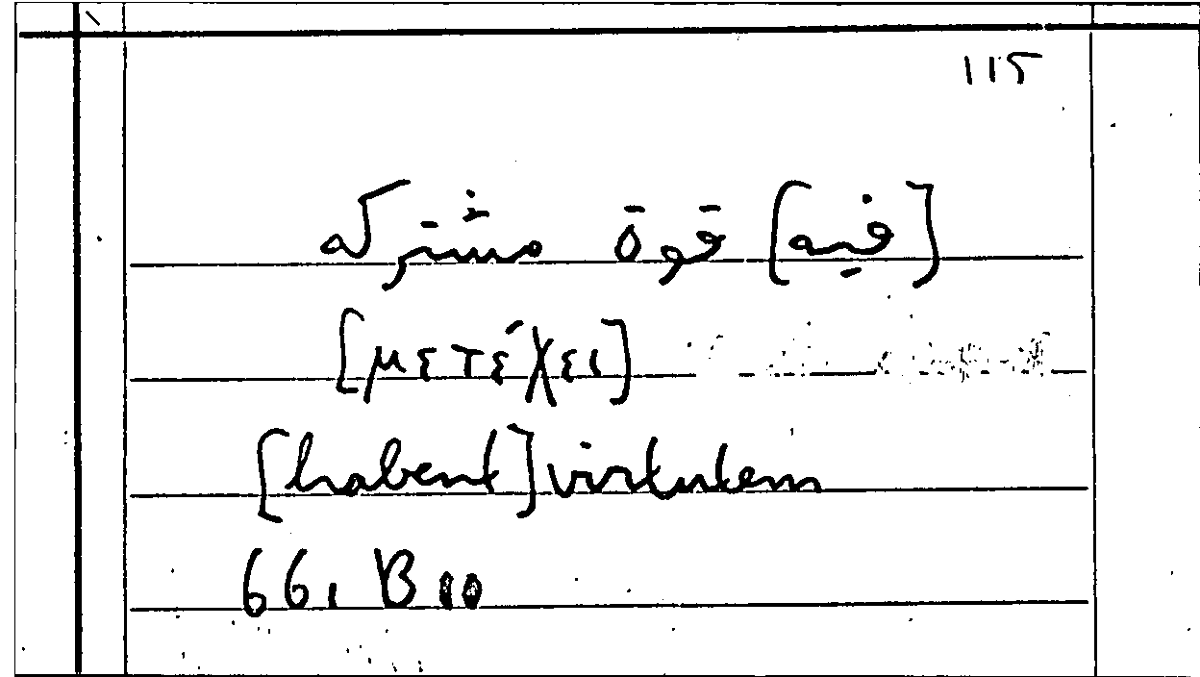 115
[فيه] قوة مشتركه
[μετέχει]
[habent] virtutem
661 B 10